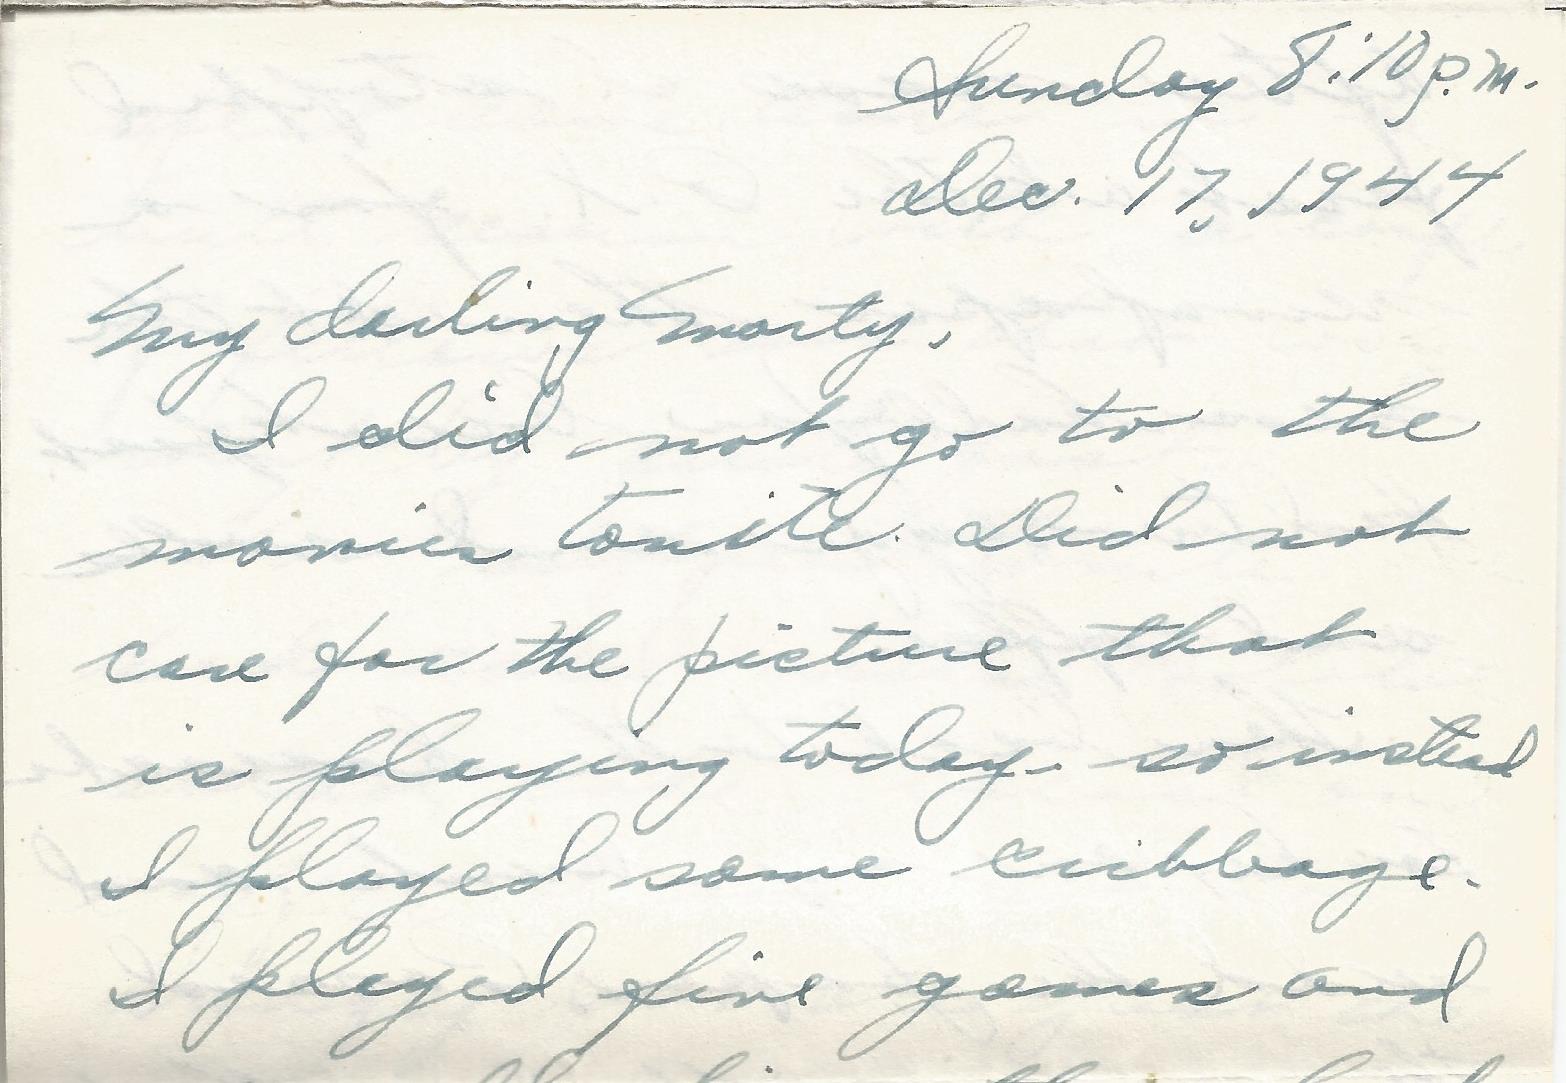 Sunday 8:10 p.m.
Dec. 17, 1944
My darling Marty,
I did not go to the
movies tonite. Did not
care for the picture that
is playing today. so instead
I played some cribbage.
I played five games and